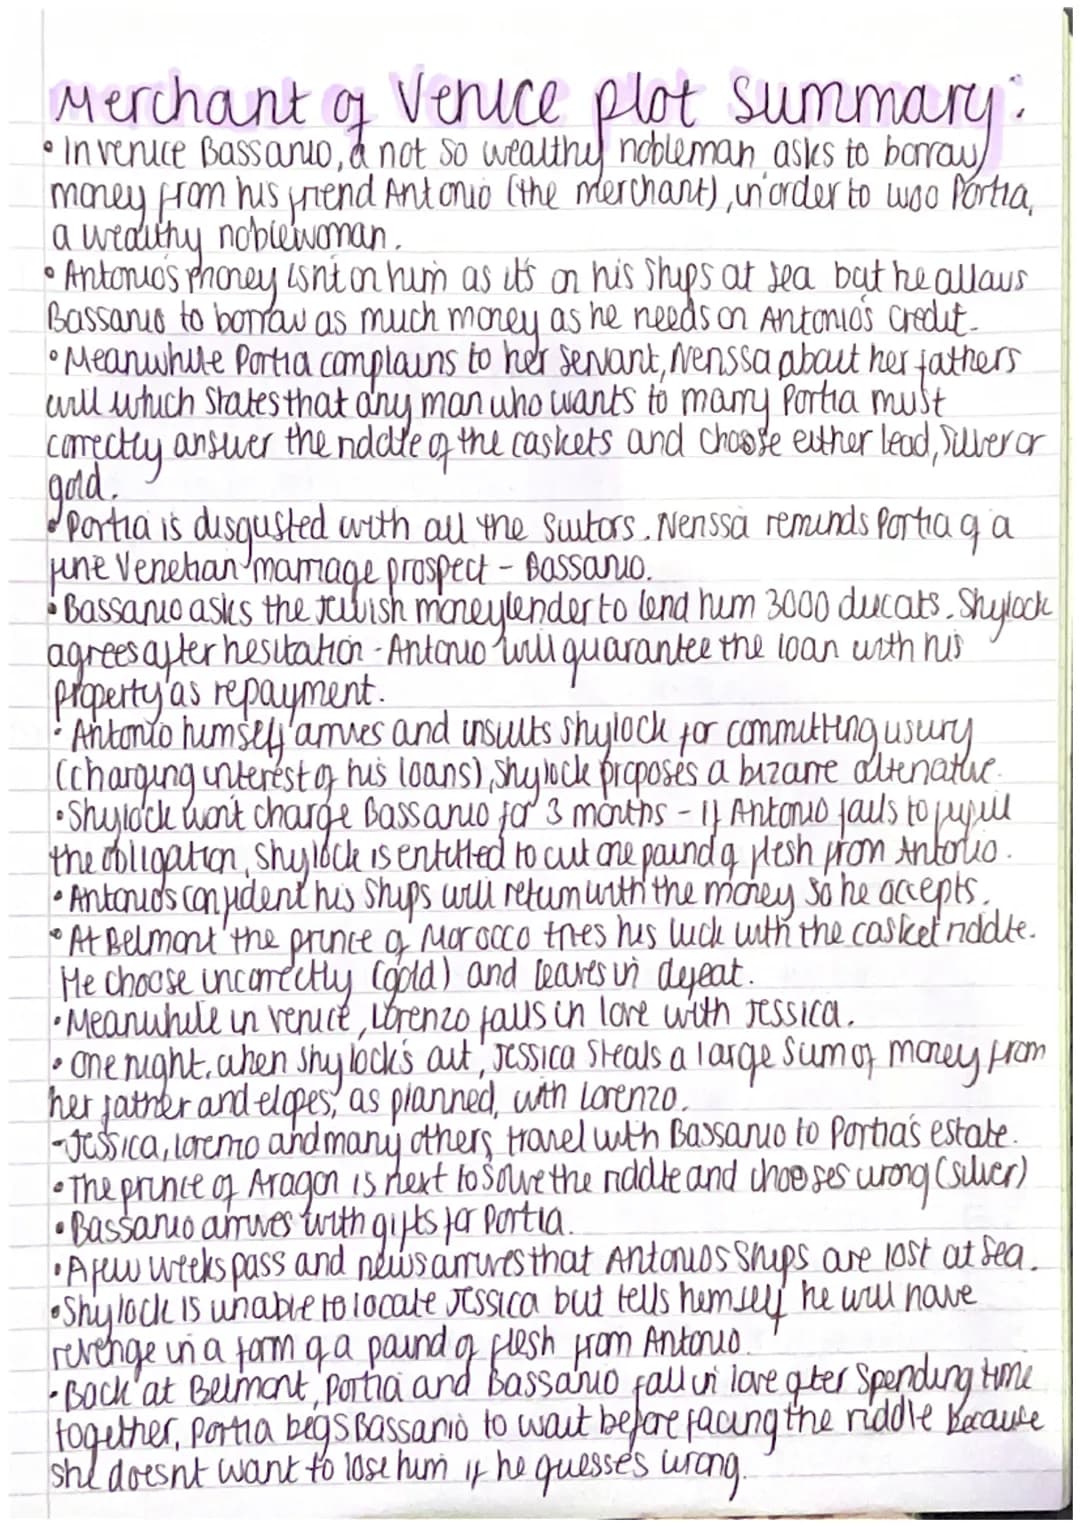 Merchant of Venice plot summary:
• In venice Bassanio, a not so wealthy nobleman asks to borrow
money from his friend Antonio (the merchant), in order to woo Portia,
a wealthy noblewoman.
• Antonio's money isnt on him as it's on his ships at sea but he allows
Bassanio to borrow as much money as he needs on Antonio's credit.
• Meanwhile Portia complains to her servant, Nerissa about her fathers
will which states that any man who wants to marry Portia must
correctly answer the riddle of the caskets and choose either lead, silver or
gold.
• Portia is disgusted with all the suitors. Nerissa reminds Portia of a
fine Venetian marriage prospect - Bassanio.
• Bassanio asks the Jewish moneylender to lend him 3000 ducats. Shylock
agrees after hesitation - Antonio will guarantee the loan with his
property as repayment.
• Antonio himself arrives and insults Shylock for committing usury
(charging interest of his loans), Shylock proposes a bizarre altenative.
• Shylock won't charge Bassanio for 3 months - if Antonio fails to fulfill
the obligation, Shylock is entitled to cut one pound of flesh from Antonio.
• Antonio's confident his ships will return with the money so he accepts.
• At Belmont the prince of Morocco tries his luck with the casket riddle.
He choose incorrectly (gold) and leaves in defeat.
• Meanwhile in venice, Lorenzo falls in love with Jessica.
• One night, when Shylock's out, Jessica steals a large sum of money from
her father and elopes, as planned, with Lorenzo.
- Jessica, lorenzo and many others, travel with Bassanio to Portia's estate.
• The prince of Aragon is next to solve the riddle and chooses wrong (silver)
• Bassanio arrives with gifts for Portia.
• A few weeks pass and news arrives that Antonios ships are lost at sea.
• Shylock is unable to locate Jessica but tells hemself he will have
revenge in a form of a pound of flesh from Antonio.
• Back at Belmont, Portia and Bassanio fall in love after spending time
together, Portia begs Bassanio to wait before facing the riddle because
she doesnt want to lose him if he guesses wrong.